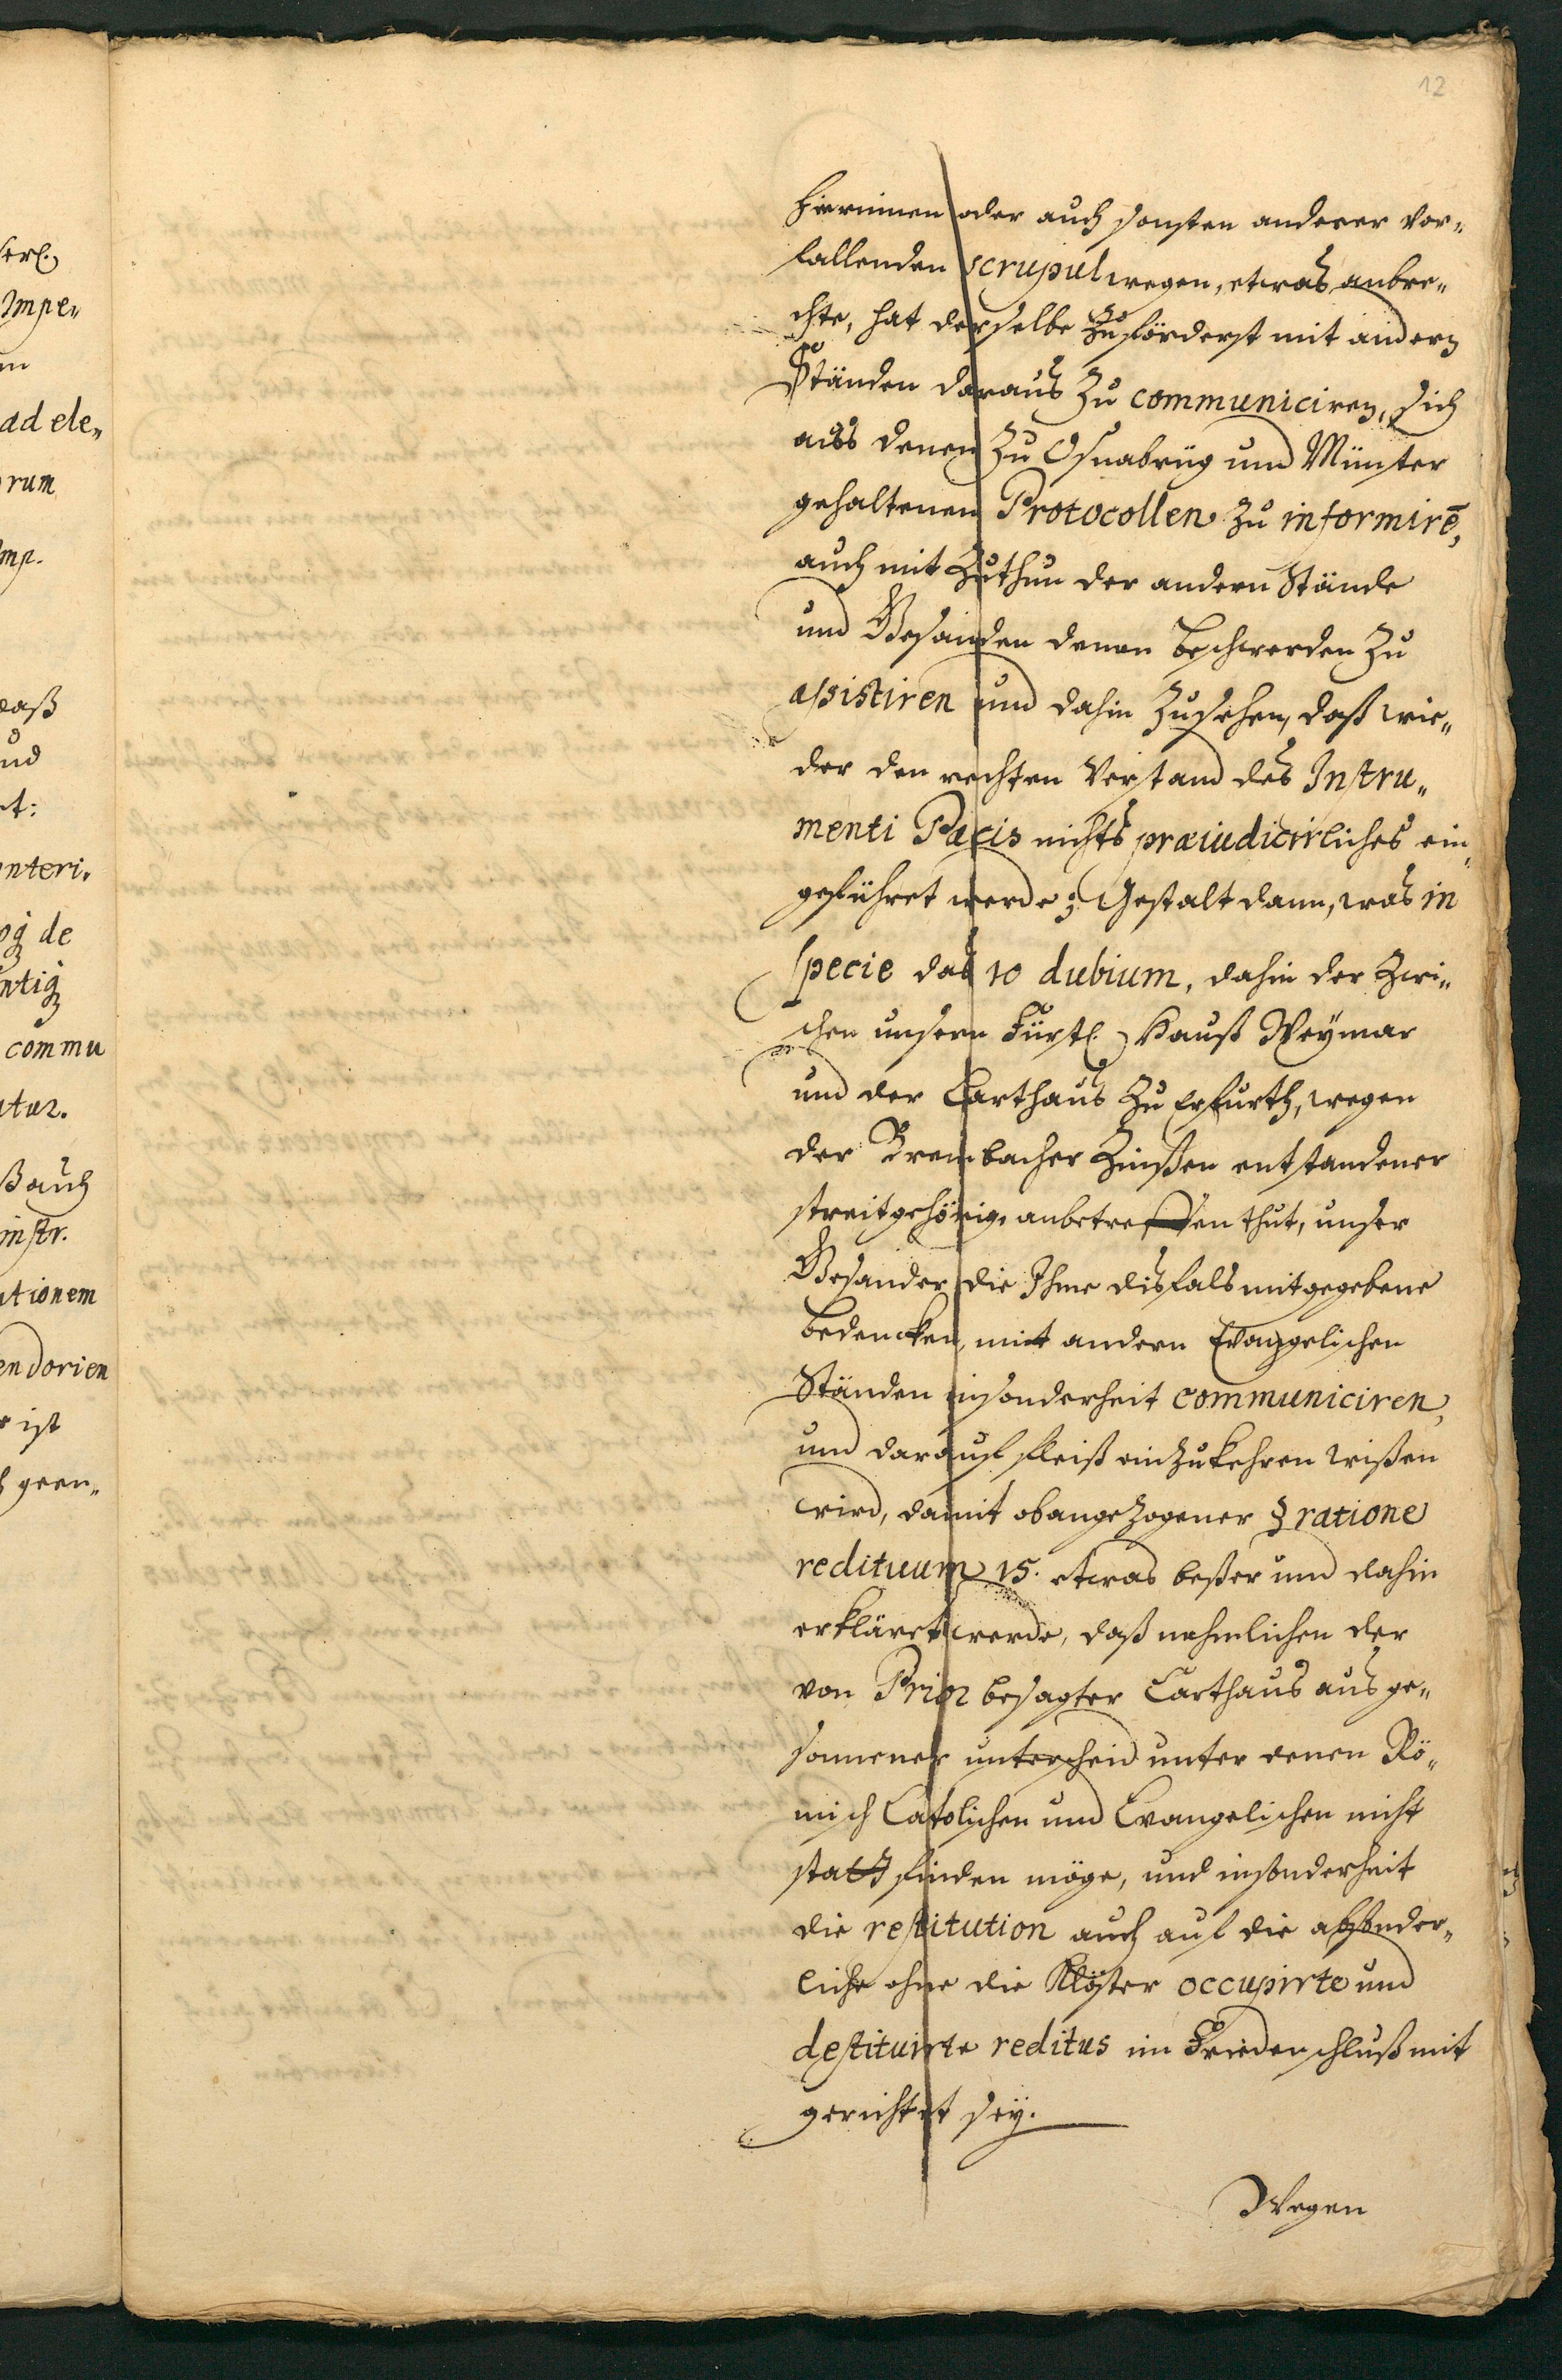 12
hierinnen oder auch sonsten anderer vor„
fallenden scrupul wegen, etwas anbre„
chte, hat derselbe zuförderst mit andern
Ständen daraus zu communiciren, sich
auß denen zu Oßnabrüg und Münster
gehaltenen Protocollen zu informirē,
auch mit zuthun der andern Stände
und Gesanden denen beschwerden zu
assistiren und dahin zusehen, daß wie„
der den rechten Verstand des Instru„
menti Pacis nichts præiudicirliches ein„
geführet werde; Gestalt dann, was in
specie das 10 dubium, dahin der zwi„
schen unsern Fürstl. Hauß Weymar
und der Carthaus zu Erfurth, wegen
der Brembacher Zinßen entstandener
streit gehörig, anbetreffen thut, unser
Gesander die Ihme disfals mitgegebene
bedencken, mit andern Evangelischen
Ständen insonderheit communiciren,
und darauf fleiß einzukehren wißen
wird, damit obangezogener § ratione
redituum 15. etwas beßer und dahin
erkläret werde, daß nehmlichen der
von Prior besagter Carthaus ausge„
sonnener unterscheid unter denen Rö„
misch Catolischen und Evangelischen nicht
statt finden möge, und insonderheit
die restitution auch auf die absonder„
liche ohne die Klöster occupirte und
destituirte reditus im Friedenschluß mit
gerichtet sey.
Wegen
serl.
Impe„
ad ele„
orum
Imp.
daß
und
nteri.
de
commu
atur.
ß auch
instr.
utionem
endorien
ist
geen„